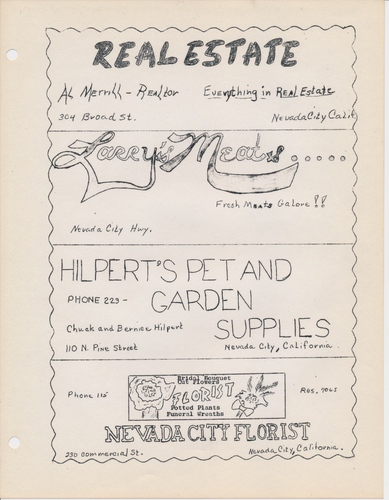 REAL ESTATE
Al Merrill - Realtor Everything in Real Estate
304 Broad St. Nevada City Calif.
Larry's Meats!! .....
Fresh Meats Galore!!
Nevada City Hwy.
HILPERT'S PET AND
PHONE 223- GARDEN
Chuck and Bernice Hilpert SUPPLIES
110 N. Pine Street Nevada City, California.
Bridal Bouquet
Cut Flowers
Phone 115 FLORIST Res. 706J
Potted Plants
Funeral Wreaths
NEVADA CITY FLORIST
230 Commercial St. Nevada City, California.